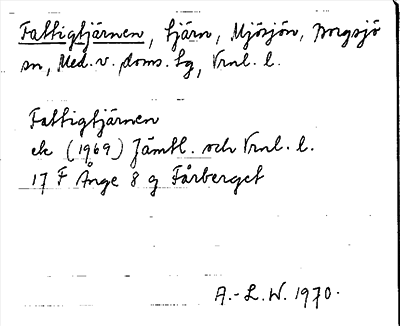 Fattigtjärnen, tjärn, Mjösjön, Borgsjö
sn, Med. v. doms. tg, Vrnl. l.
Fattigtjärnen
ek (1969) Jämtl. och Vrnl. l.
17 F Ånge 8 g Fårberget
A.-L.W. 1970.